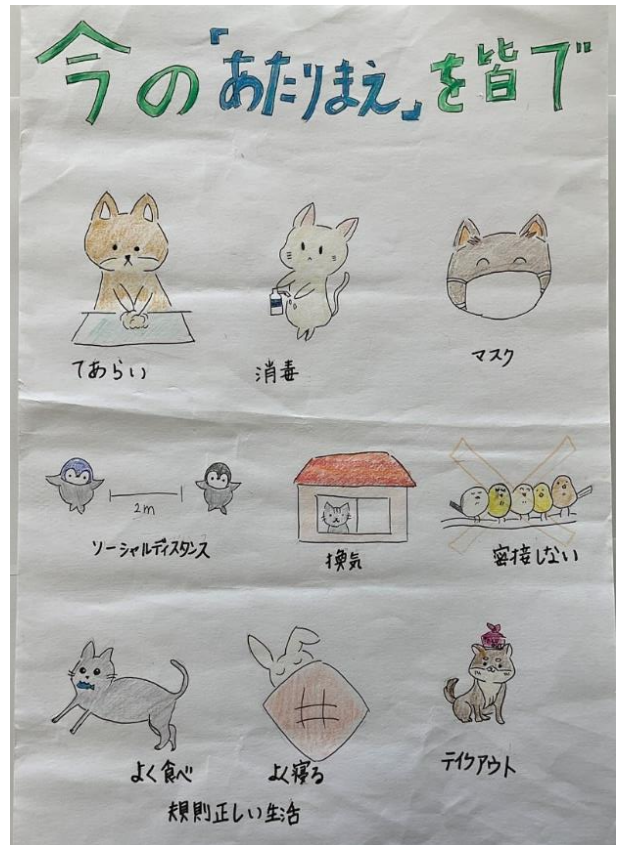 今の「あたりまえ」を皆で
てあらい
消毒
マスク
2m
ソーシャルディスタンス
換気
密接しない
よく食べ
よく寝る
テイクアウト
規則正しい生活